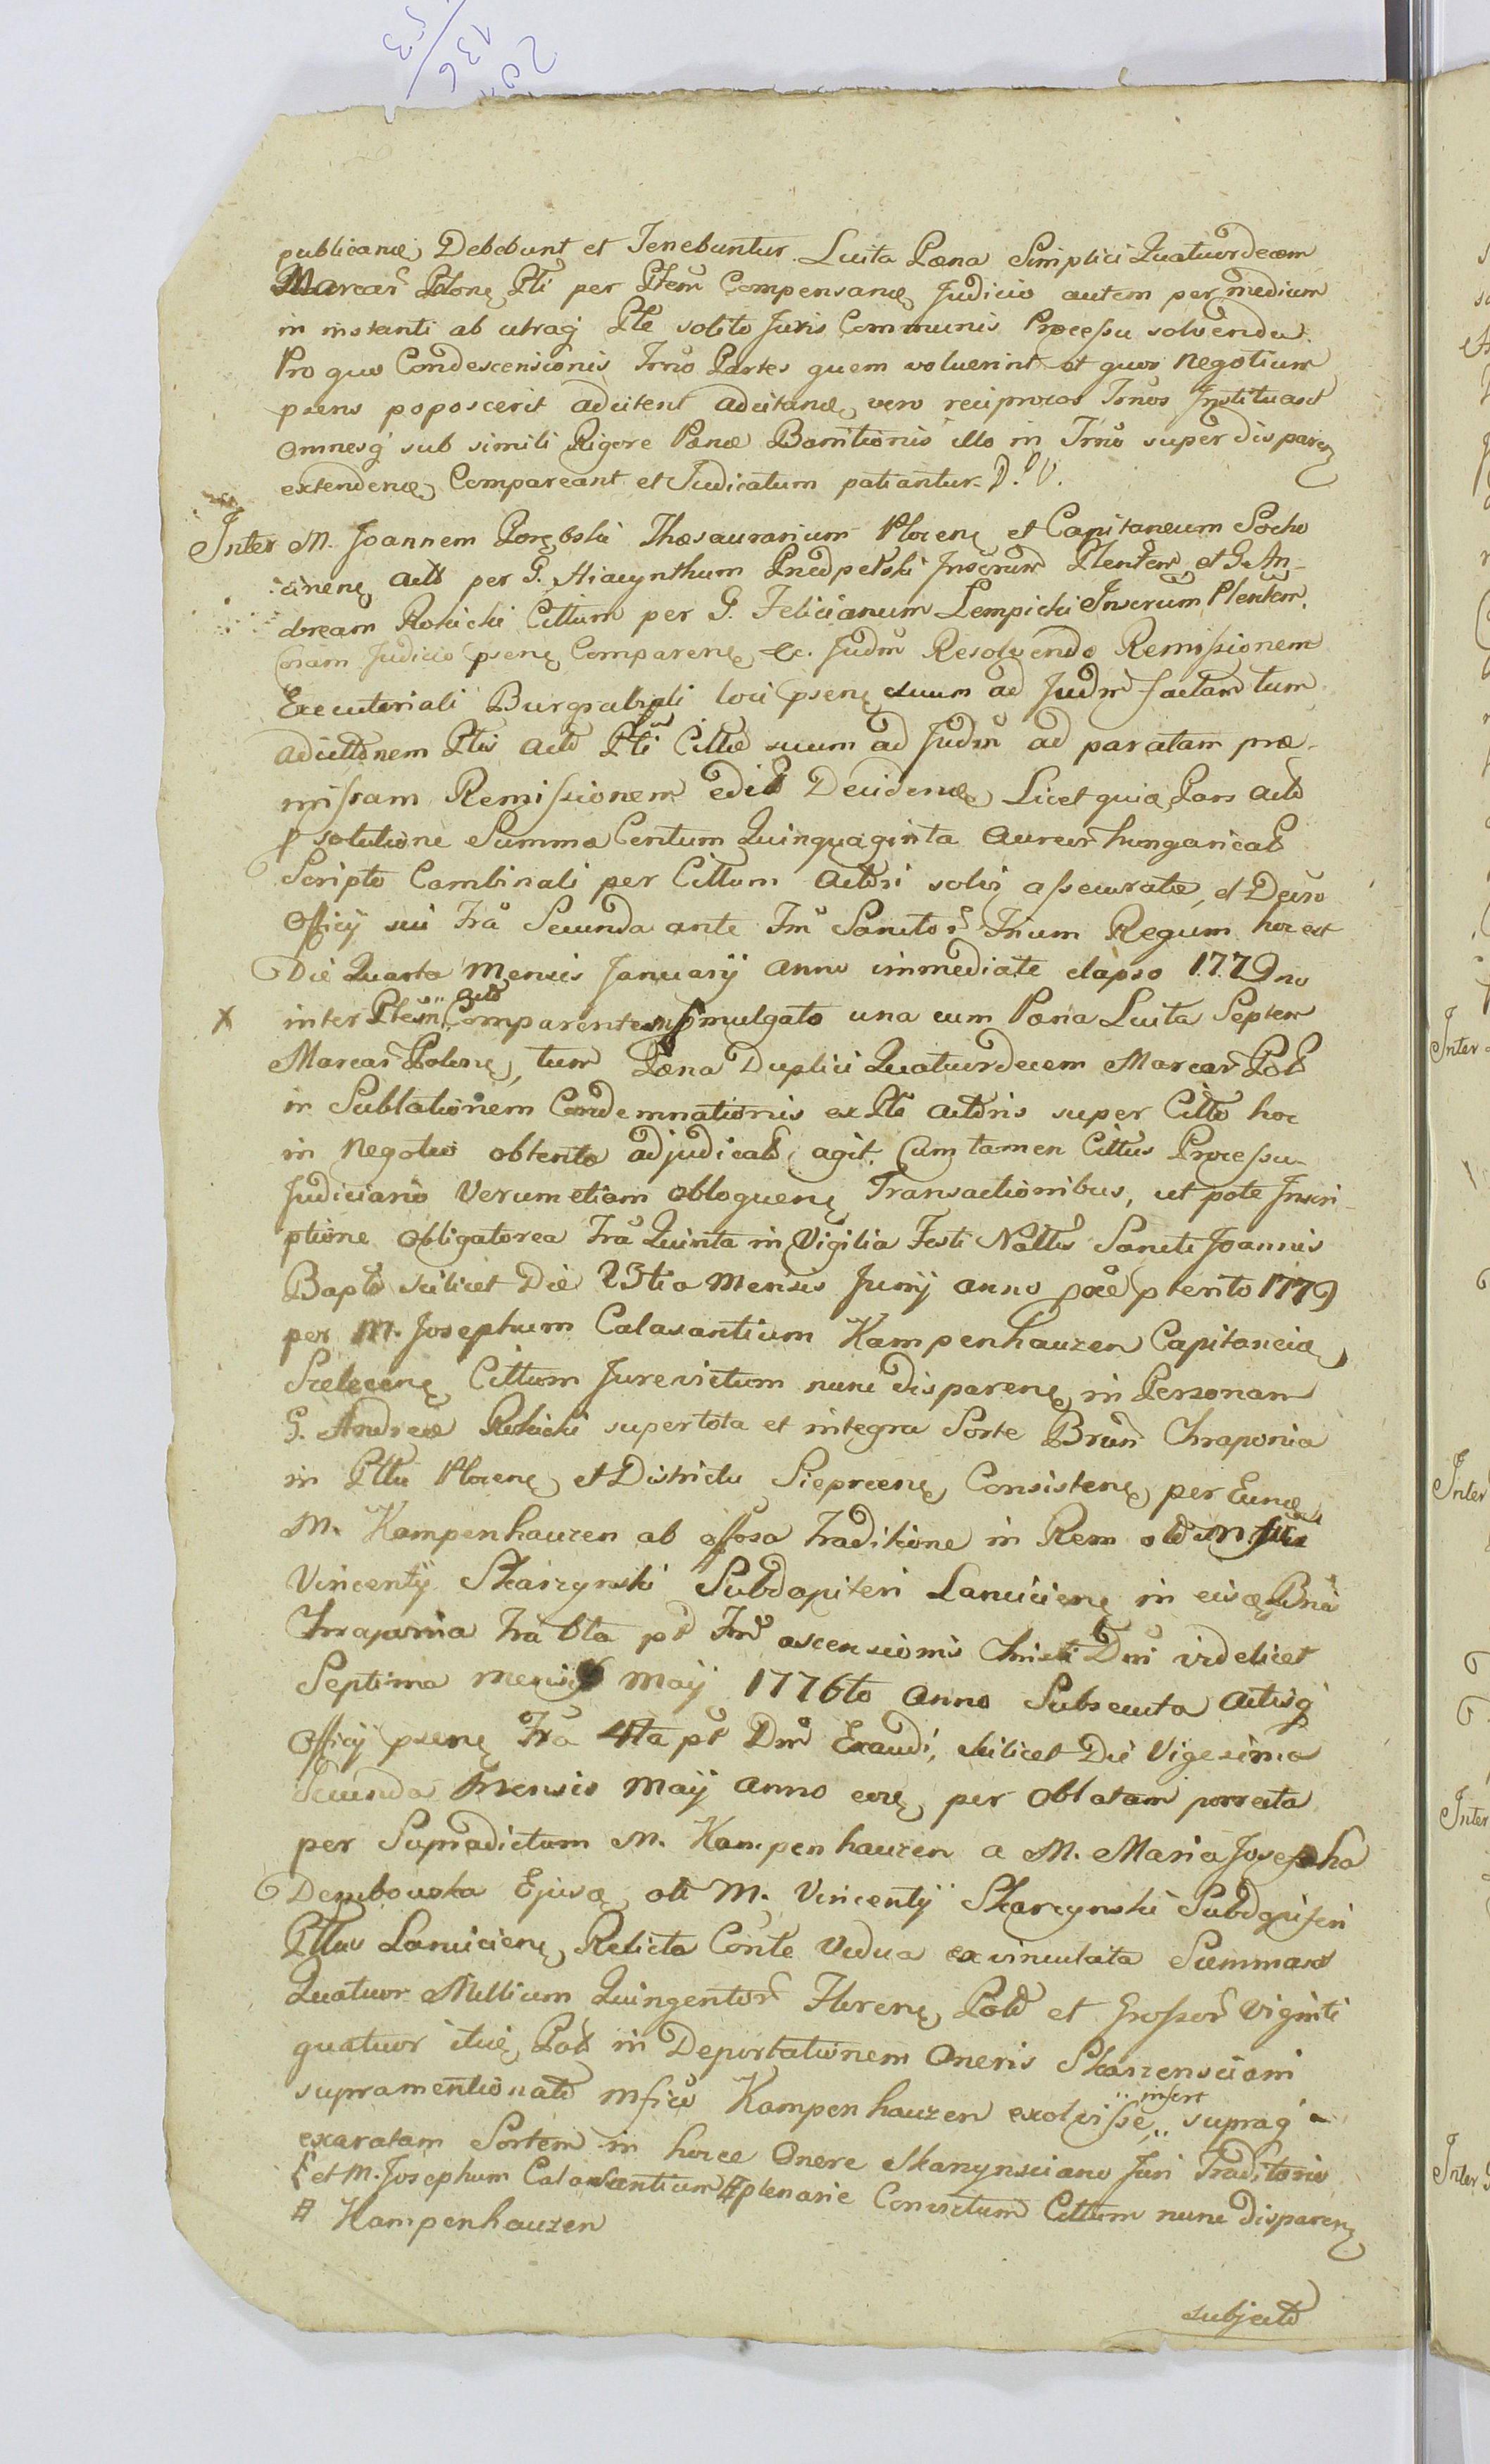 publicanæ Debebunt et Tenebuntur. Luita Pæna Simplici Quatuordecem
Marcar Polonę Pti per Ptem Compensanæ Judicio autem per medium
in instanti ab utraq Pte solito Juris Communis Processu solvenda.
Pro quo Condescensionis Trno Partes quem voluerint et quos negotium
psens poposcerit adcitent adcitanæ vero reciprocos Trnos Instituant
omnesq sub simili Rigore Pænæ Bannitionis illo in Trno super disparen
extendenæ Compareant et Judicatum patiantur. D. V.
Inter M. Joannem Porębski Thesaurarium Plocenę et Capitaneum Socho
cinenę Actd per G. Hiacynthum Przedpełski Inscrum Plentem et G. An-
dream Rokicki Cittum per G. Felicianum Lempicki Inscrum Plentem.
Coram Judicio psenę Comparenę &c. Judm Resolvendo Remissionem
Executoriali Burgrabiali loci psenę suum ad Judm factam tum
adcittonem Ptis actd Pti Cittæ suum ad Judm ad paratam præ-
missam Remissionem edit Decidenæ Licet quia Pars actd
p solutione Summæ Centum Quinquaginta Aureor hungarical
Scripto Cambinali per Cittum Actori solvi assecuratæ, et Decro
Officij sui Fra Secunda ante Fm Sanctor Trium Regum hoc est
Die Quarta Mensis January anno immediate elapso 1779no
x inter Ptem actd Comparentem pmulgato una cum Pæna Luita Septem
Marcar Polonę, tum Pæna Duplici Quatuordecem Marcar Pol
in Sublationem Condemnationis ex Pte actoris super Citto hoc
in negotio obtento adjudicatd agit. Cum tamen Cittus Processu
Judiciario Verum etiam obloquenę Transactionibus, ut pote Inscri-
ptione obligatorea Fra Quinta in Vigilia Festi Nattis Sancti Joannis
Bapt scilicet Die 23tia Mensis Junij anno præpterito 1779
per M. Josephum Calasantium Kampenhauzen Capitaneia
Cittum Jurevictum nunc disparenę in Personam
G. Andreæ Rokicki super tota et integra Sorte Bnrum Chraponia
in Pttu Plocenę et Districtu Sieprcenę Consistenę per Eunæ
M. Kampenhauzen ab Traditione in Rem old M.
Vincenty Skarzynski Subdapiferi Lancicienę in eisæ Bnis
Chraponia Fra 6ta pt Fm ascensionis Christi Dni videlicet
Septima mensis May 1776to anno Subsecuta Actisq
Officij psenę Fra 4ta pt Dm Exaudi, scilicet Die Vigesima
Secunda Mensis Maij anno eoę per Oblatam porrecta
per Supradictum M. Kampenhauzen a M. Maria Josepha
Dembowska Ejusæ oli M. Vincentij Skarzynski Subdapiferi
Pttus Lancicienę Relicta Conte Vidua exvinculata Summam
Quatuor Millium Quingentor Florenę Pold et Grossor Viginti
quatuor itię Pol in Deportationem Oneris Skarzensciani
supramentionatd Mfico Kampenhauzen exolvisse insert supraq
exaratam Sortem in hocce Onere Skarzynsciano Juri Traditorio
{ et M. Josephum Calasantium # plenarie Convictum Cittum nunc disparen
# Kampenhauzen
subjectd
Inter
Inter
Inter
Inter